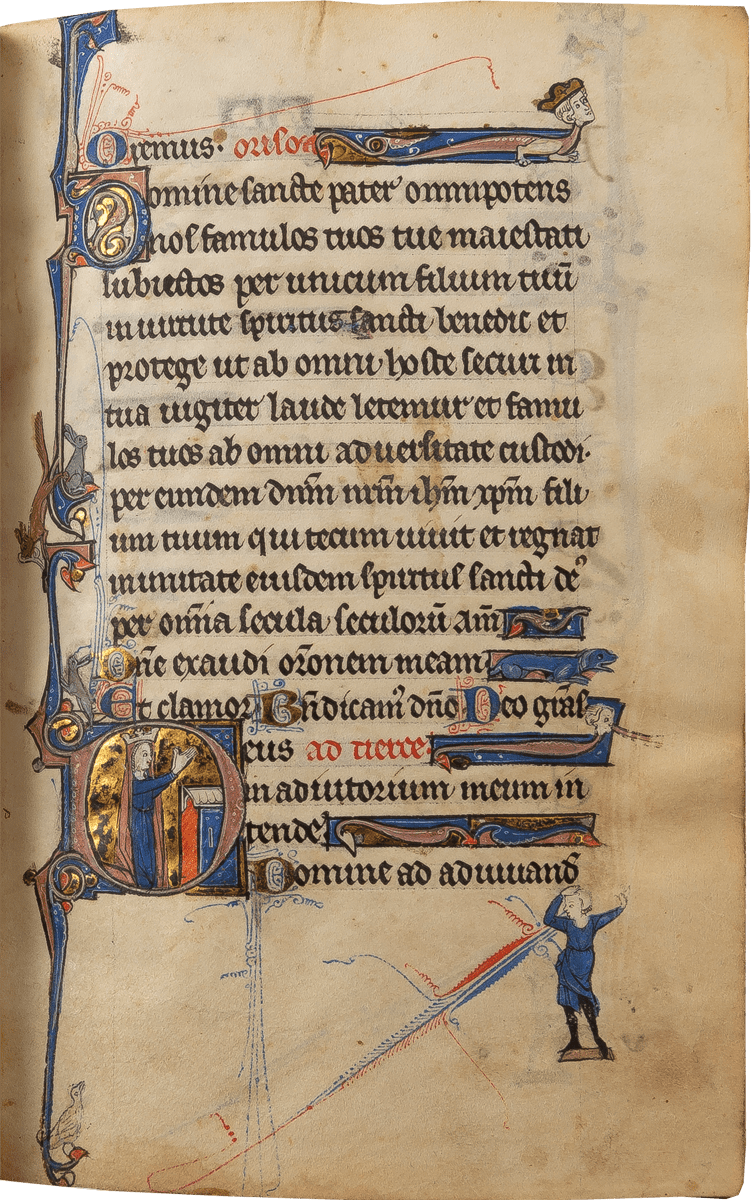 Oremus. oriso
Domine sancte pater omnipotens
nos famulos tuos tue maiestati
subiectos per unicum filium tuū
in uirtute spiritus sancti benedic et
protege ut ab omni hoste securi in
tua iugiter laude letemur et famu
los tuos ab omni aduersitate custodi.
per eundem dn̄m nr̄m ih̄m xp̄m fili
um tuum qui tecum uiuit et regnat
in unitate eiusdem spiritus sancti de'
per om̄ia secula seculorū am̄
Dn̄e exaudi or̄onem meam
Et clamor Bn̄dicam' dn̄o Deo grās
Deus ad tierce.
in adiutorium meum in
tende
Domine ad adiuuand̄